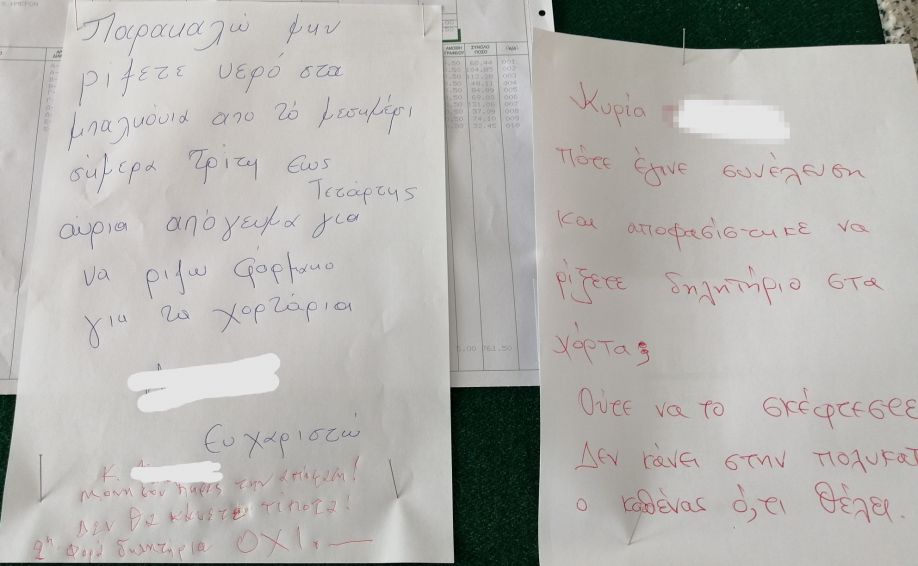 Παρακαλώ μην
ρίξετε νερό στα
μπαλκόνια απο το μεσημέρι
σήμερα Τρίτη εως
Τετάρτης
αύριο απόγευμα για
να ριξω φάρμακο
για τα χορτάρια
Ευχαριστώ
Κ.
Μόνη σου πήρες την απόφαση!
Δεν θα κάνετε τίποτα!
2η φορά δηλητήρια ΟΧΙ.
Κυρία
Πότε έγινε συνέλευση
και αποφασίστηκε να
ρίξετε δηλητήριο στα
χόρτα;
Ούτε να το σκέφτεσθε
Δεν κάνει στην πολυκατ
ο καθένας ό,τι θέλει.
ΣΥΝΟΛΟ